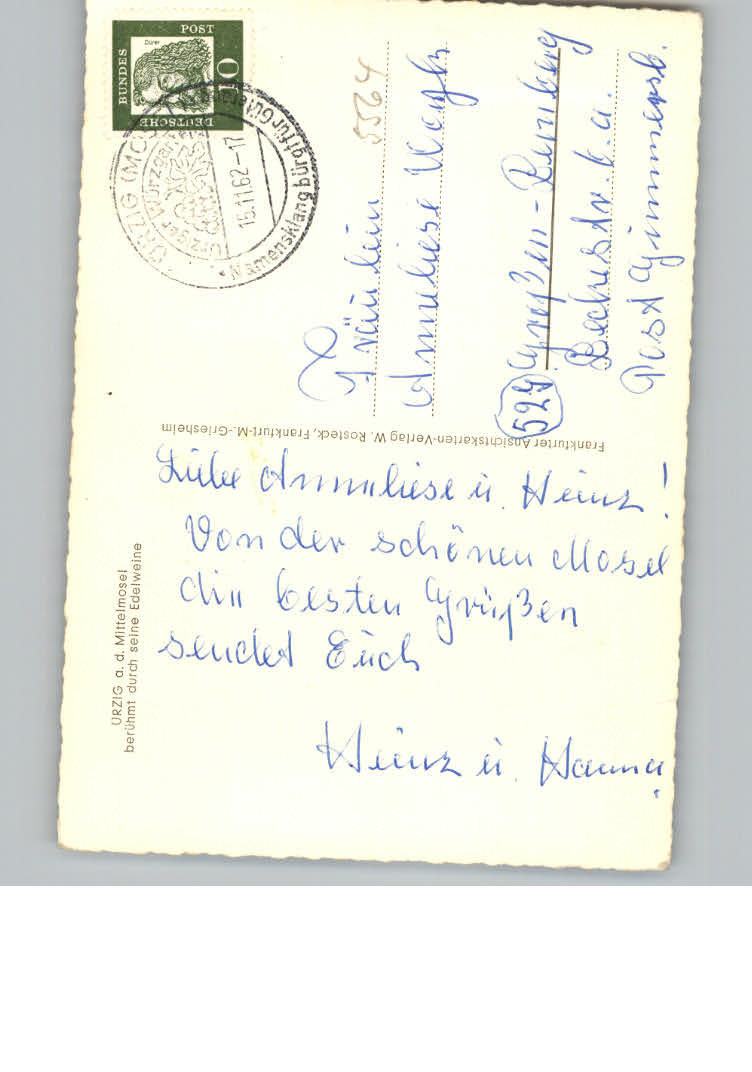 DEUTSCHE
BUNDES
POST
Dürer
10
ÜRZIG (MOSEL
Ürziger Würzgarten
15.11.62-17
Namensklang bürgt für Güte
5564
Fräulein
Anneliese
529
Post Gummersb.
Frankfurter Ansichtskarten-Verlag W. Rosteck, Frankfurt-M.-Griesheim
ÜRZIG a. d. Mittelmosel
berühmt durch seine Edelweine
Liebe Anneliese u. Heinz!
Von der schönen Mosel
die besten Grüßen
sendet Euch
Heinz u. Hanna